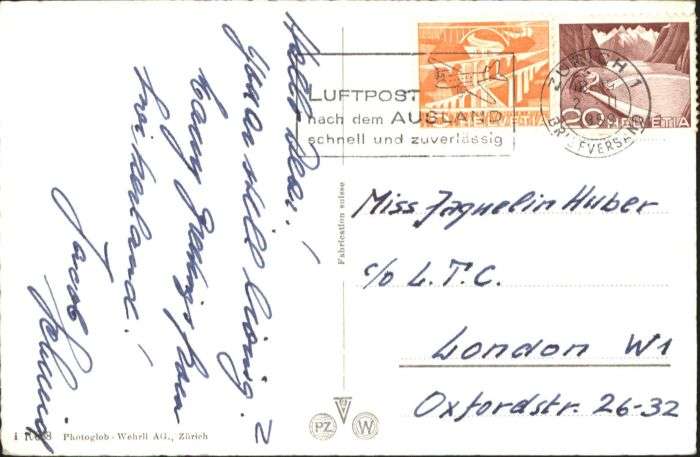 Hello dear!
You're still living?
Many Greetings from
Switzerland!
Jacob
LUFTPOST
nach dem AUSLAND
schnell und zuverlässig
ZÜRICH 1
BRIEFVERSAND
20 HELVETIA
HELVETIA
Miss Jaquelin Huber
c/o L.T.C.
London W1
Oxfordstr. 26-32
Fabrication suisse
PZ W
Photoglob-Wehrli AG., Zürich